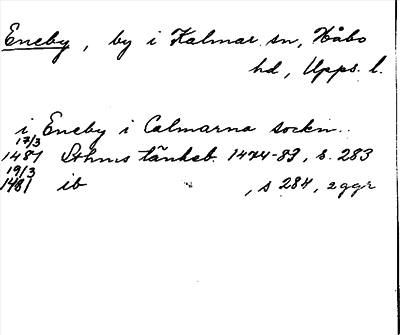 Eneby, by i Kalmar sn, Håbo
hd, Upps. l.
i Eneby i Calmarna sockn.
17/3
1481 Sthms tänkeb. 1474-83, s. 283
19/3
1481 ib , s 284, 2 ggr